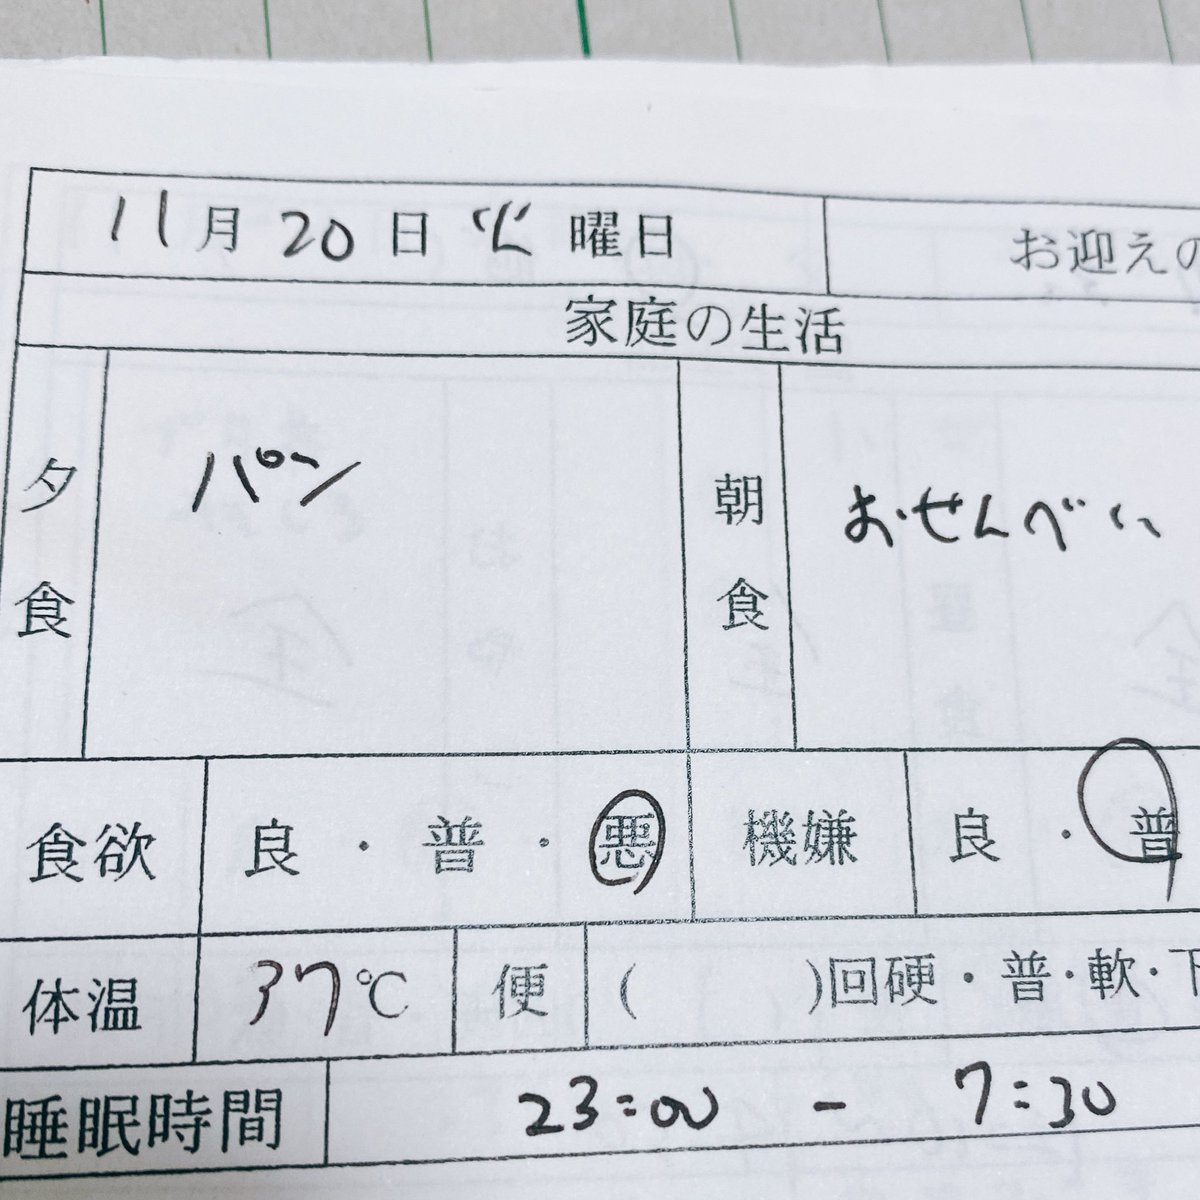 11月20日 火曜日
お迎えの
家庭の生活
夕食
パン
朝食
おせんべい
食欲 良・普・悪 機嫌 良・普
体温 37℃ 便 ( )回硬・普・軟・下
睡眠時間 23:00 - 7:30